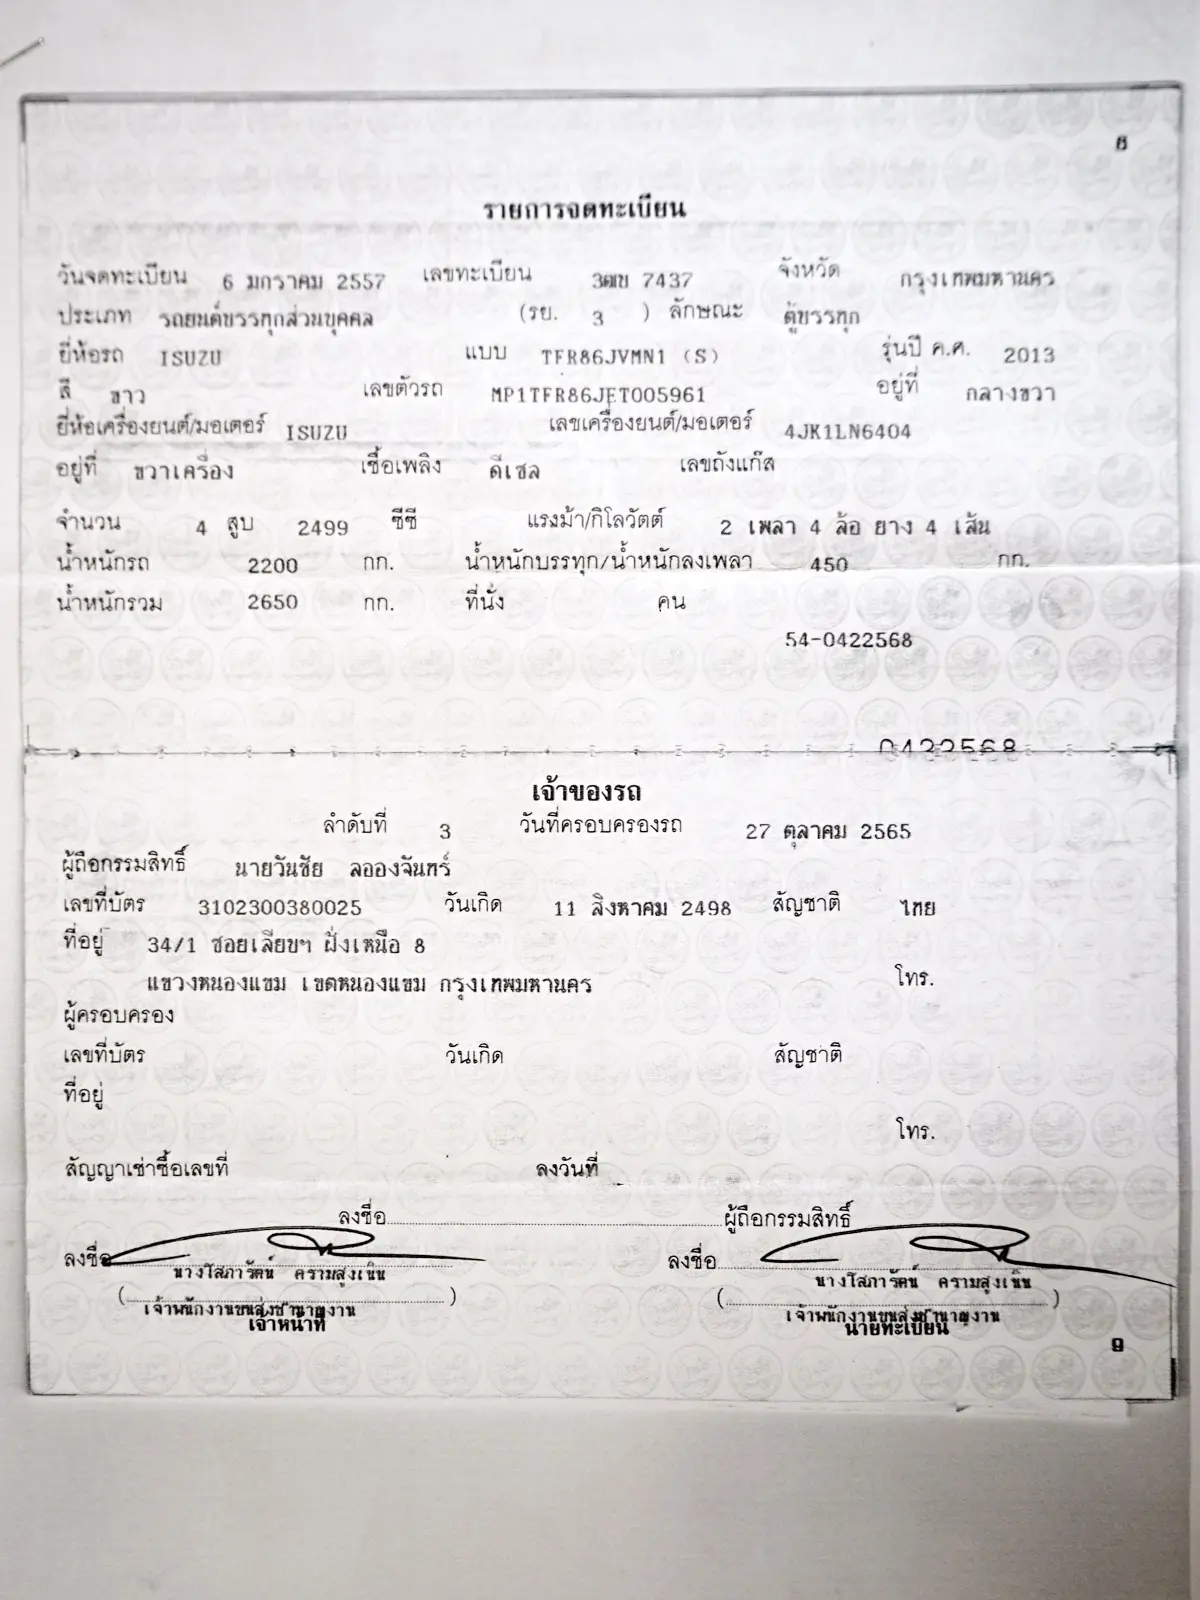 8
รายการจดทะเบียน
วันจดทะเบียน 6 มกราคม 2557 เลขทะเบียน 3ฒข 7437 จังหวัด กรุงเทพมหานคร
ประเภท รถยนต์บรรทุกส่วนบุคคล (รย. 3 ) ลักษณะ ตู้บรรทุก
ยี่ห้อรถ ISUZU แบบ TFR86JVMN1 (S) รุ่นปี ค.ศ. 2013
สี ขาว เลขตัวรถ MP1TFR86JET005961 อยู่ที่ กลางขวา
ยี่ห้อเครื่องยนต์/มอเตอร์ ISUZU เลขเครื่องยนต์/มอเตอร์ 4JK1LN6404
อยู่ที่ ขวาเครื่อง เชื้อเพลิง ดีเซล เลขถังแก๊ส
จำนวน 4 สูบ 2499 ซีซี แรงม้า/กิโลวัตต์ 2 เพลา 4 ล้อ ยาง 4 เส้น
น้ำหนักรถ 2200 กก. น้ำหนักบรรทุก/น้ำหนักลงเพลา 450 กก.
น้ำหนักรวม 2650 กก. ที่นั่ง คน
54-0422568
0422568
เจ้าของรถ
ลำดับที่ 3 วันที่ครอบครองรถ 27 ตุลาคม 2565
ผู้ถือกรรมสิทธิ์ นายวันชัย ลอองจันทร์
เลขที่บัตร 3102300380025 วันเกิด 11 สิงหาคม 2498 สัญชาติ ไทย
ที่อยู่ 34/1 ซอยเลียบฯ ฝั่งเหนือ 8
แขวงหนองแขม เขตหนองแขม กรุงเทพมหานคร โทร.
ผู้ครอบครอง
เลขที่บัตร วันเกิด สัญชาติ
ที่อยู่
โทร.
สัญญาเช่าซื้อเลขที่ ลงวันที่
ลงชื่อ ผู้ถือกรรมสิทธิ์
ลงชื่อ ลงชื่อ
นางโสภารัตน์ ครามสูงเนิน นางโสภารัตน์ ครามสูงเนิน
( ) ( )
เจ้าพนักงานขนส่งชำนาญงาน เจ้าพนักงานขนส่งชำนาญงาน
เจ้าหน้าที่ นายทะเบียน
9